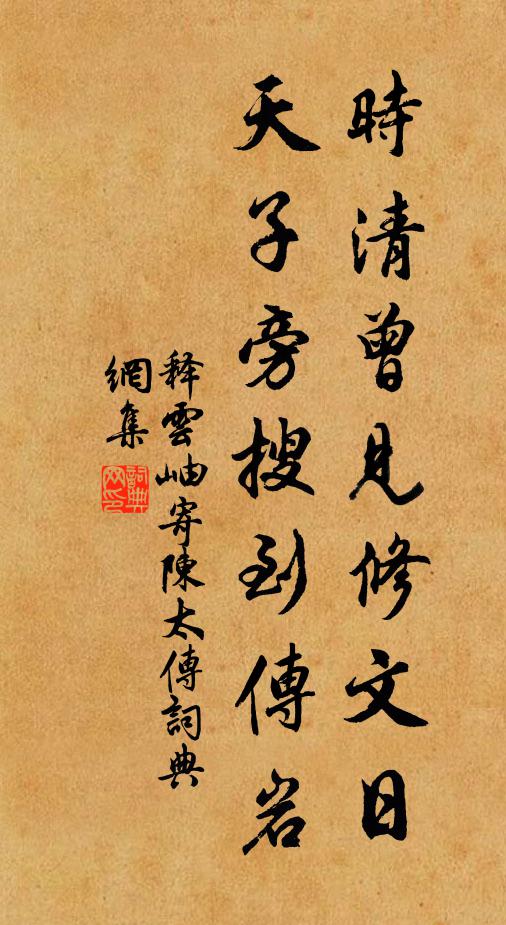 時清曾見修文日
天子旁搜到傳岩
释雲岫寄陳太傅詞典
網集
詞典
网印